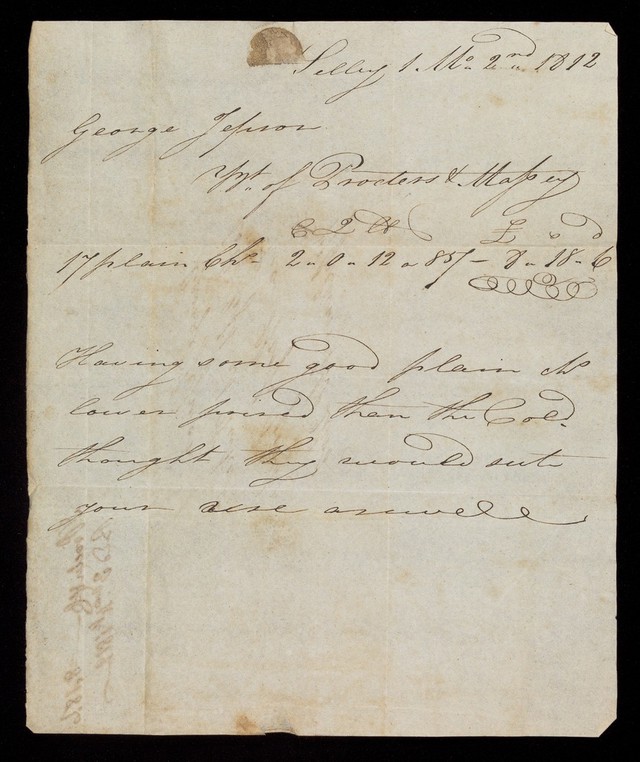 Selby 1 Mo. 2nd. 1812
George Jepson
Bt. of Procters & Massey
C Q lb £ s d
17 plain Chs 2 " 0 " 12 a 85/- 8 " 18 " 6
Having some good plain chs
lower prised than the Cold.
thought they would sute
your use aswell